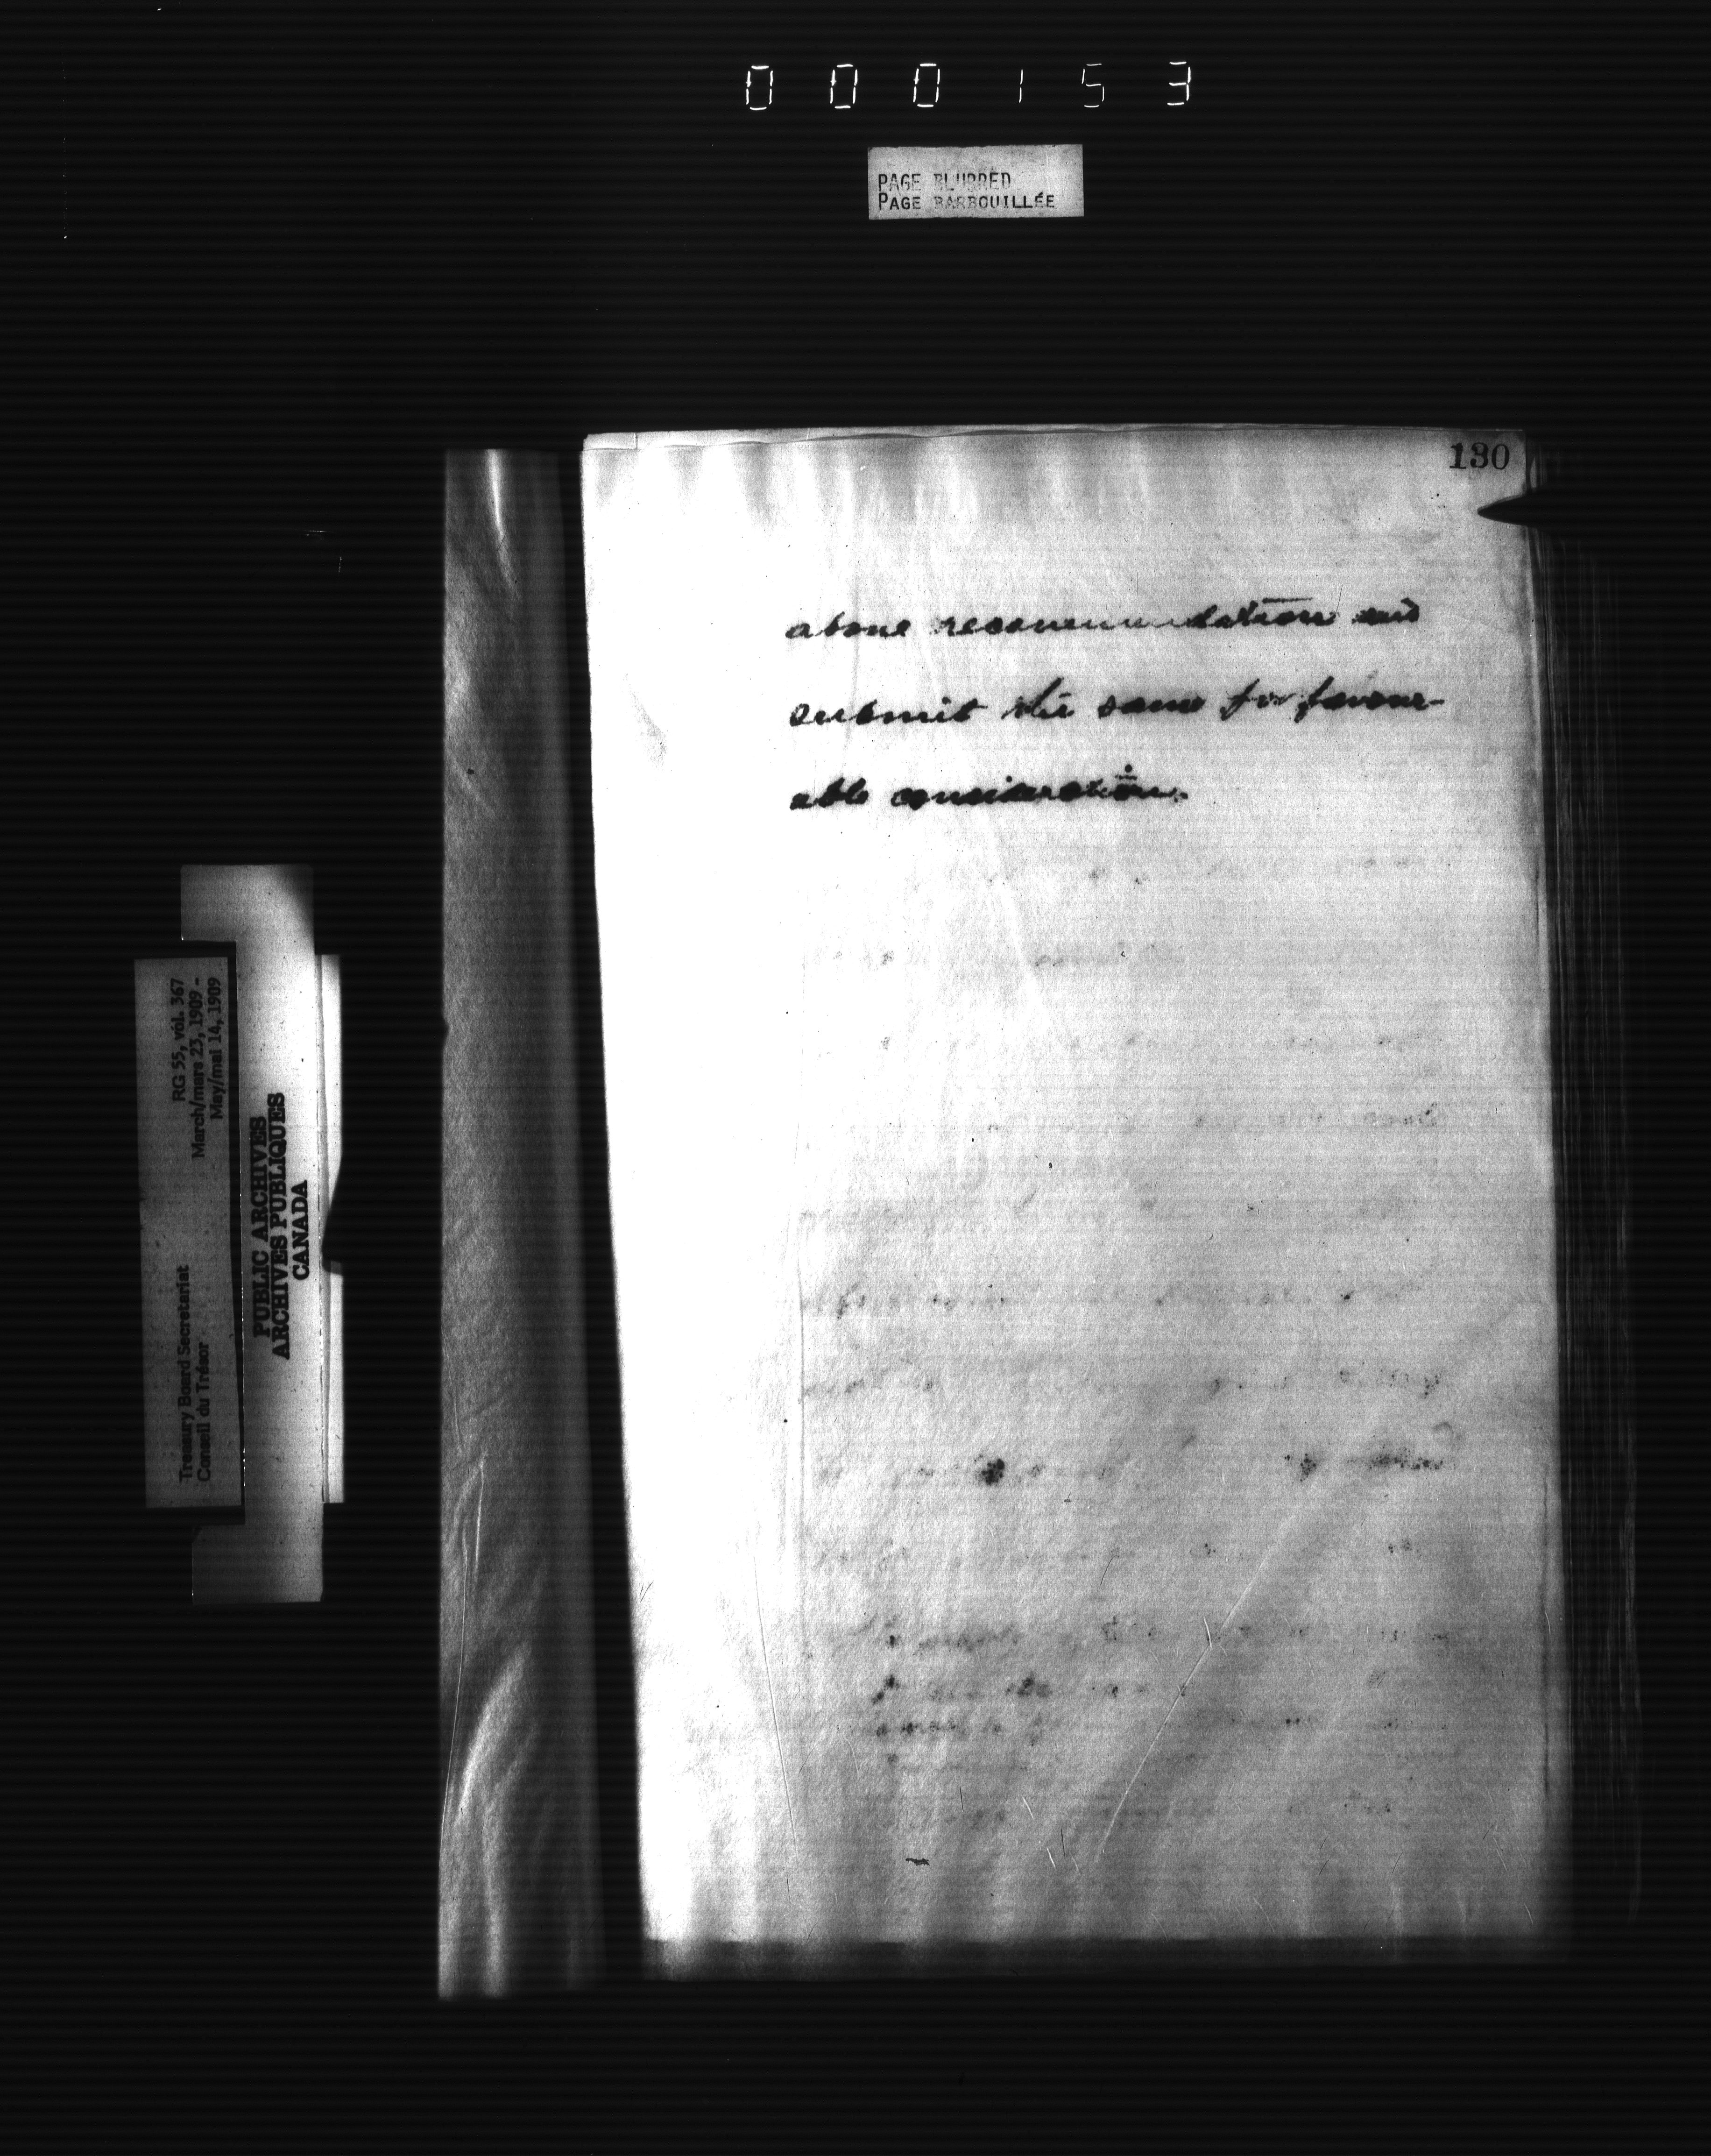 000153
PAGE BLURRED
PAGE BARBOUILLÉE
130
above recommendation and
submit the same for favour-
able consideration.
RG 55, vol. 367
March/mars 23, 1909 -
May/mai 14, 1909
Treasury Board Secretariat
Conseil du Trésor
PUBLIC ARCHIVES
ARCHIVES PUBLIQUES
CANADA